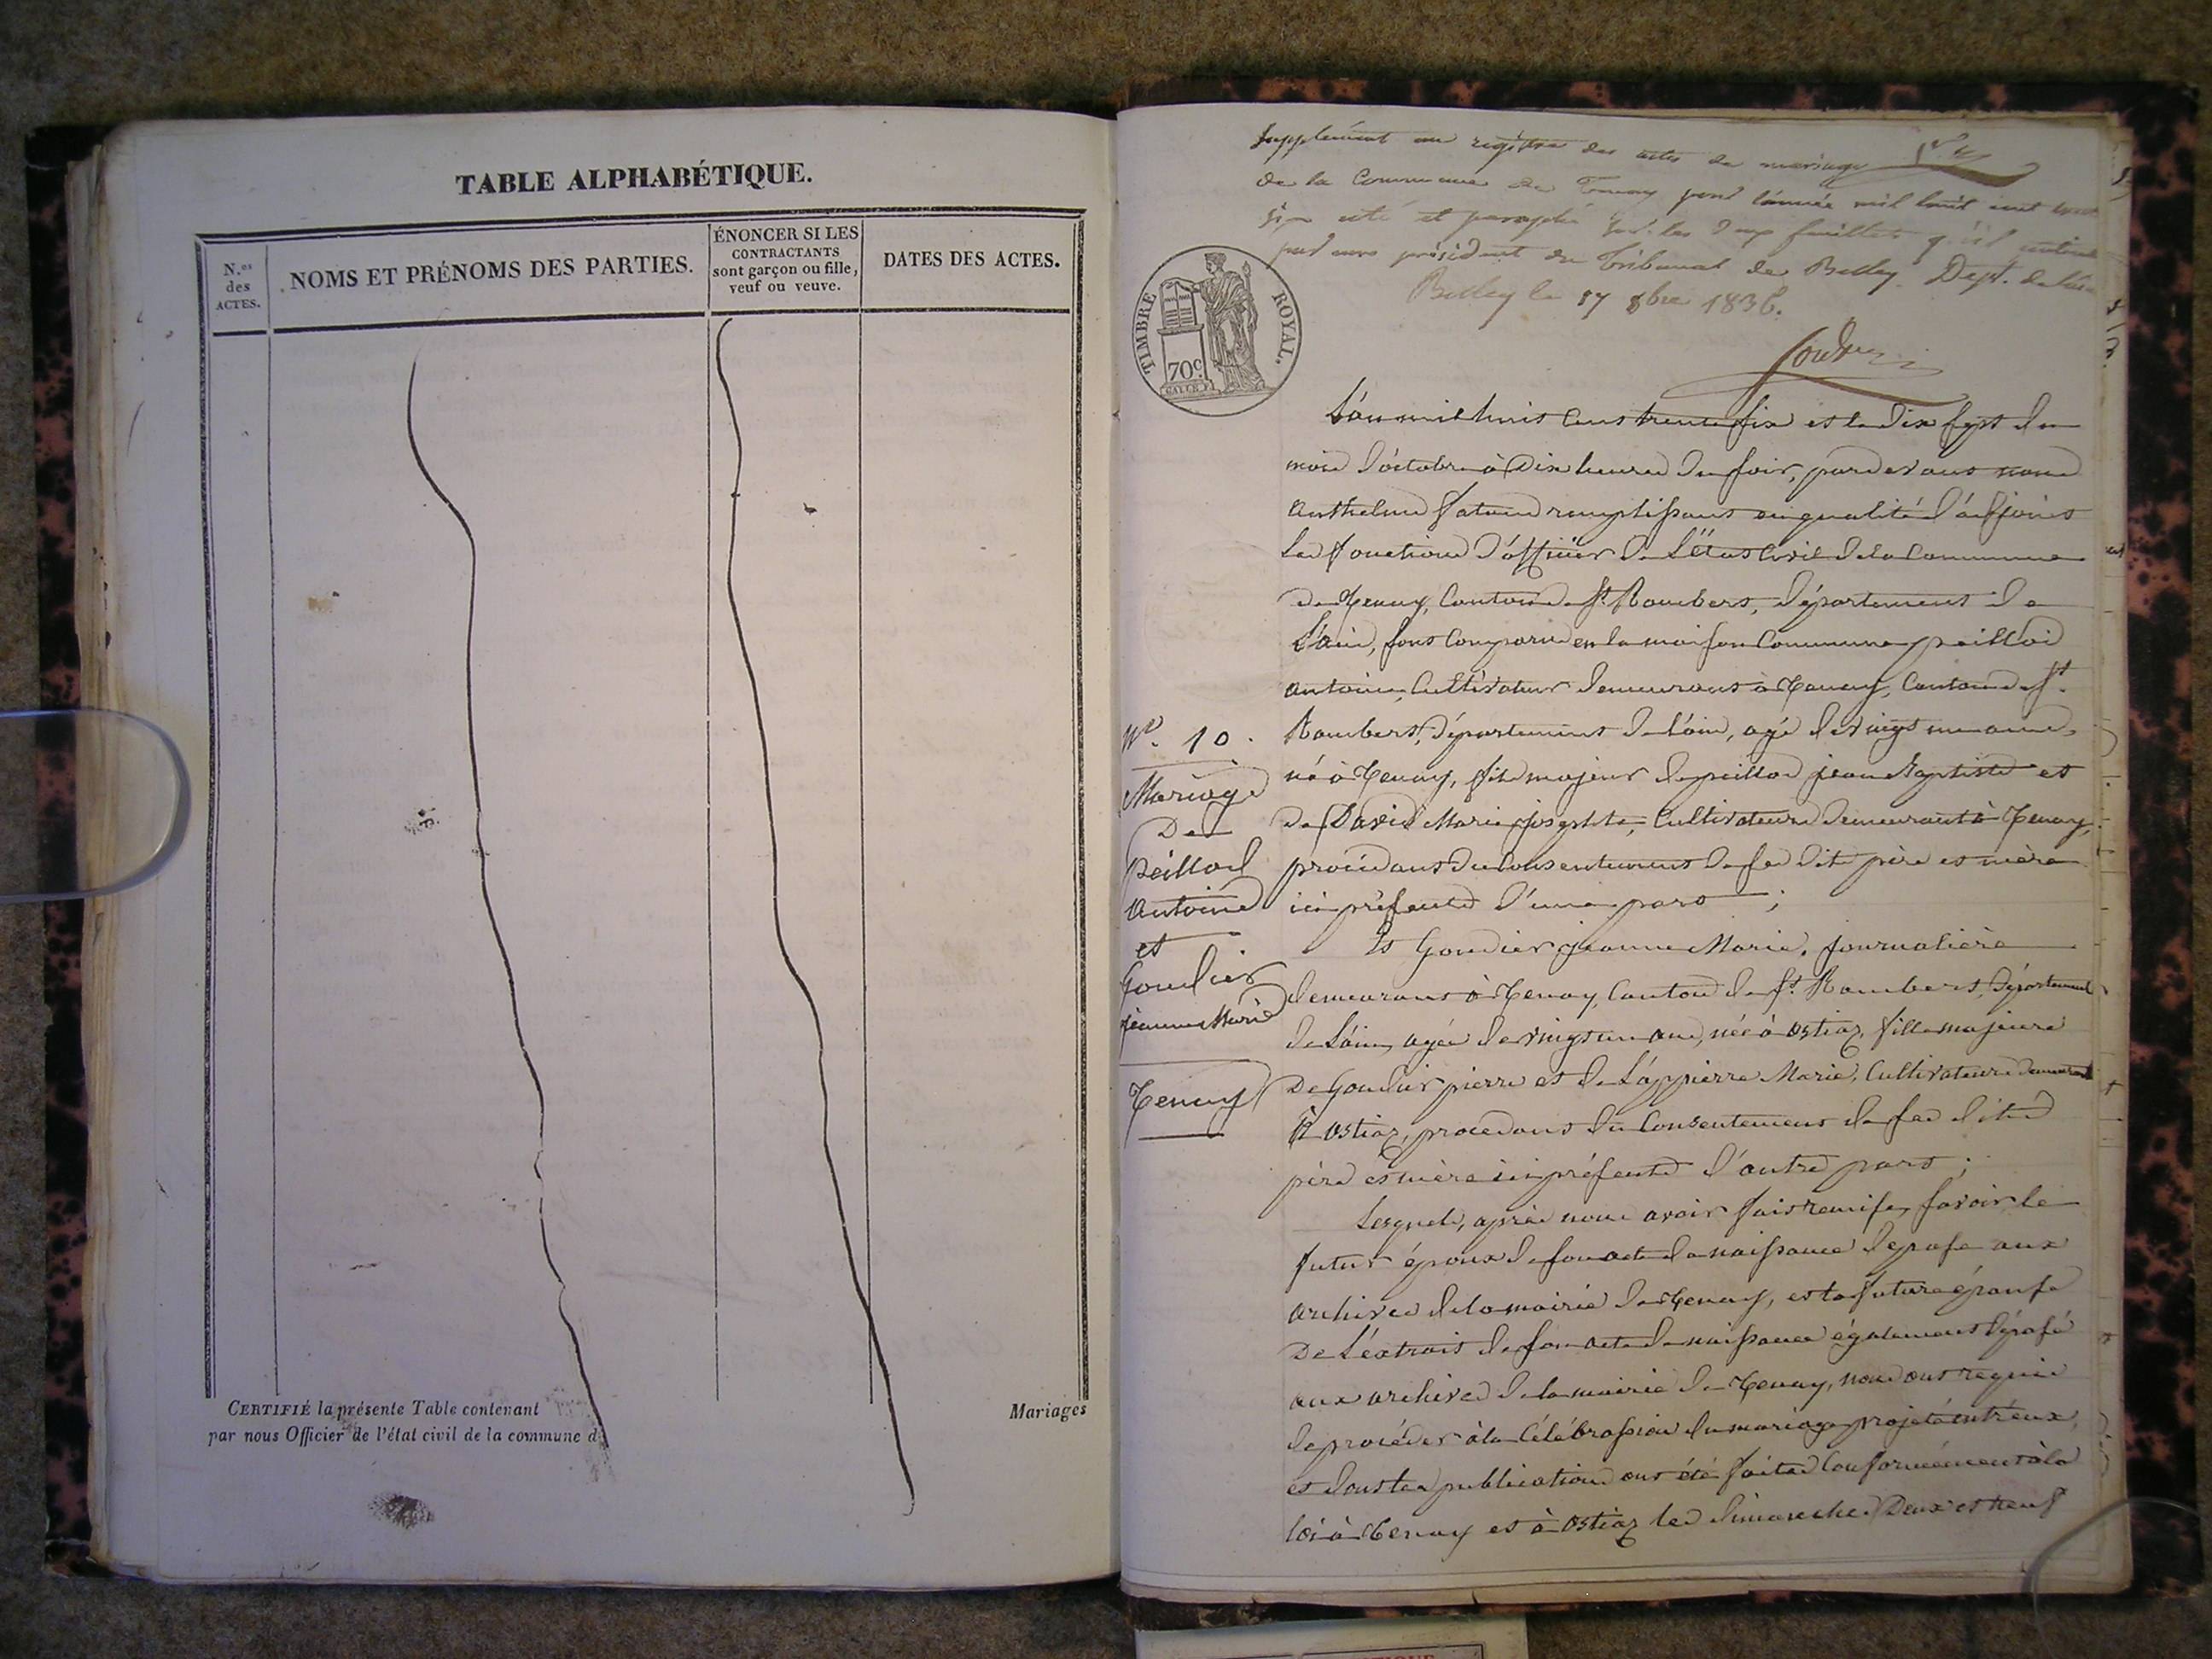 TABLE ALPHABÉTIQUE.
N.os
des
ACTES.
NOMS ET PRÉNOMS DES PARTIES.
ÉNONCER SI LES
CONTRACTANTS
sont garçon ou fille,
veuf ou veuve.
DATES DES ACTES.
CERTIFIÉ la présente Table contenant
Mariages
par nous Officier de l'état civil de la commune d
Supplément au registre des actes de mariage
de la Commune de Tenay pour l'année mil huit cent
six coté et paraphé sur les deux feuillets qu'il contient
par nous président du Tribunal de Belley Dept. de l'ain
Belley le 17 8bre 1836.
TIMBRE ROYAL.
70c.
L'an mil huit cent trente six et le dix sept du
mois d'octobre à dix heures du soir, pardevant nous
anthelme remplissant en qualité d'adjoint
les fonctions d'officier de L'état Civil de la Commune
de Tenay, Canton de St. Rambert, département de
L'ain, sont comparus en la maison Commune peillod
antoine, Cultivateur demeurant à Tenay, Canton de St.
Rambert, département de L'ain, agé de vingt un ans,
né à Tenay, fils majeur de peillod jean Baptiste et
de David Marie josephte, Cultivateurs demeurant à Tenay,
procédant du Consentement de ses dit père et mère
ici présents d'une part ;
N.o 10.
Mariage
De
peillod
antoine
et
Goudier
jeanne Marie
Tenay
Et Goudier jeanne Marie, journalière
demeurant à Tenay, Canton de St. Rambert, Département
de L'ain, agée de vingt un ans, née à ostiaz, fille majeure
De Goudier pierre et de Lappierre Marie, Cultivateurs demeurant
à ostiaz, procedant du Consentement de ses dits
père et mère ici présents d'autre part ;
Lesquels, après nous avoir fait remise, savoir le
futur époux de son acte de naissance déposé aux
archives de la mairie de Tenay, et la future épouse
De L'extrait de son acte de naissance également déposé
aux archives de la mairie de Tenay, nous ont requis
de procéder à la Célébration du mariage projeté entr'eux,
et dont les publications ont été faites Conformément à la
loi à Tenay et à ostiaz les dimanches Deux et neuf